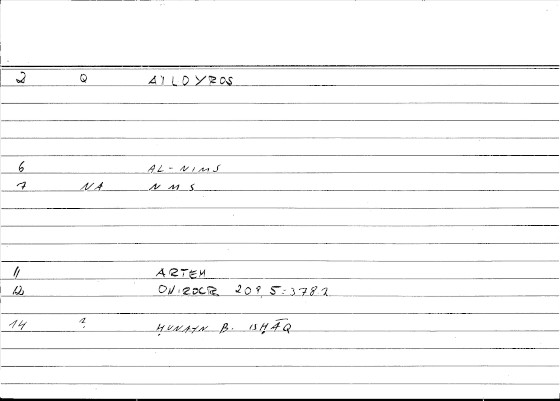 2 Q AILOYROS
6 AL-NIMS
7 NA NMS
11 ARTEM
12 ONIROCR. 209, 5:378,2
14 ? ḤUNAYN B. ISḤĀQ